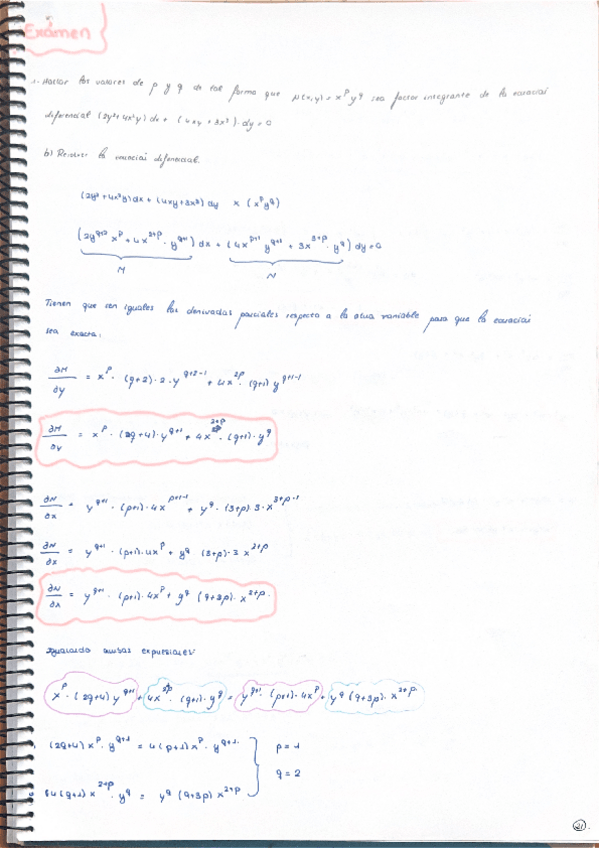 Exámen
1.- Hallar los valores de p y q de tal forma que μ(x,y) = x^p y^q sea factor integrante de la ecuación
diferencial (2y²+4x²y)dx + (4xy + 3x³)·dy = 0
b) Resolver la ecuación diferencial.
(2y²+4x²y)dx + (4xy+3x³)dy x (x^p y^q)
(2y^{q+2} x^p + 4x^{2+p} · y^{q+1}) dx + (4x^{p+1} y^{q+1} + 3x^{3+p} · y^q) dy = 0
M N
Tienen que ser iguales las derivadas parciales respecto a la otra variable para que la ecuación
sea exacta:
∂M/∂y = x^p · (q+2) · 2 · y^{q+2-1} + 4x^{2p} · (q+1) y^{q+1-1}
∂M/∂y = x^p · (2q+4) · y^{q+1} + 4x^{2+p} · (q+1) · y^q
∂N/∂x = y^{q+1} · (p+1) · 4x^{p+1-1} + y^q · (3+p) 3 · x^{3+p-1}
∂N/∂x = y^{q+1} · (p+1) · 4x^p + y^q (3+p) · 3 x^{2+p}
∂N/∂x = y^{q+1} · (p+1) · 4x^p + y^q (9+3p) · x^{2+p}
Igualando ambas expresiones
x^p · (2q+4) y^{q+1} + 4x^{2p} · (q+1) · y^q = y^{q+1} · (p+1) · 4x^p + y^q (9+3p) · x^{2+p}
(2q+4) x^p · y^{q+1} = 4(p+1) x^p · y^{q+1} p = 1
4(q+1) x^{2+p} · y^q = y^q (9+3p) x^{2+p} q = 2
21